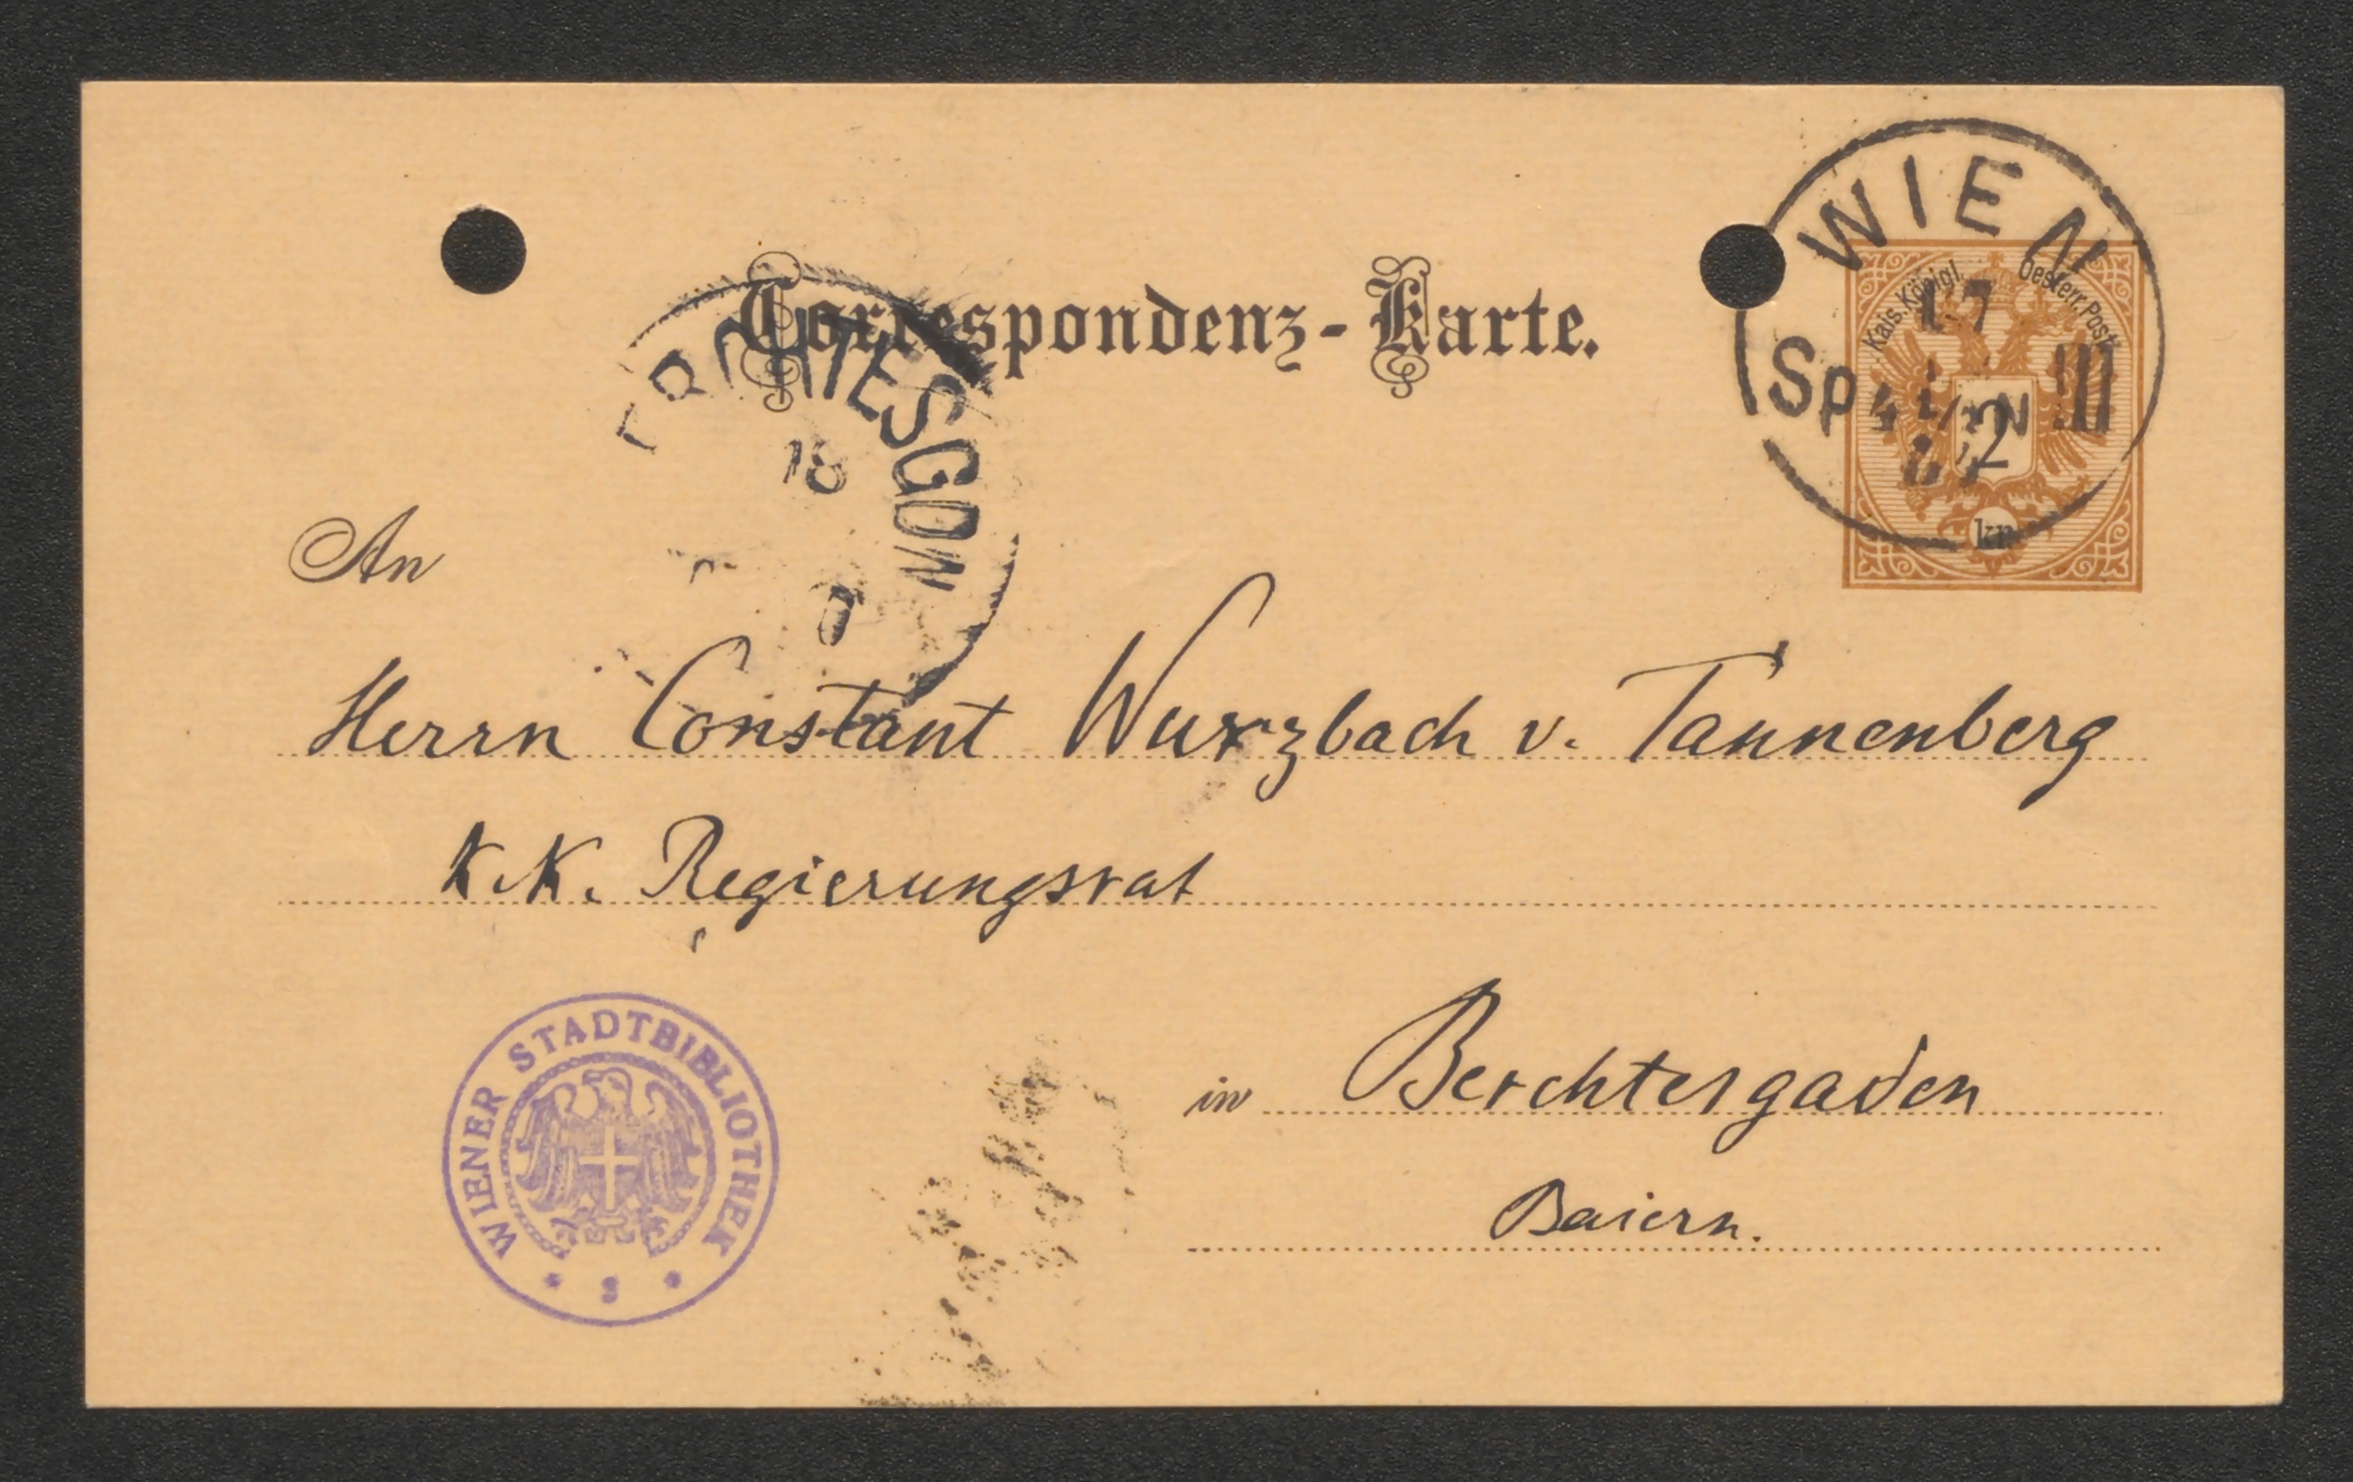 Correspondenz-Karte.
WIEN
Kais. Königl. Oesterr. Post
17
III
2
kr.
18
An
Herrn Constant Wurzbach v. Tannenberg
K. K. Regierungsrat
in Berchtesgaden
Baiern.
WIENER STADTBIBLIOTHEK